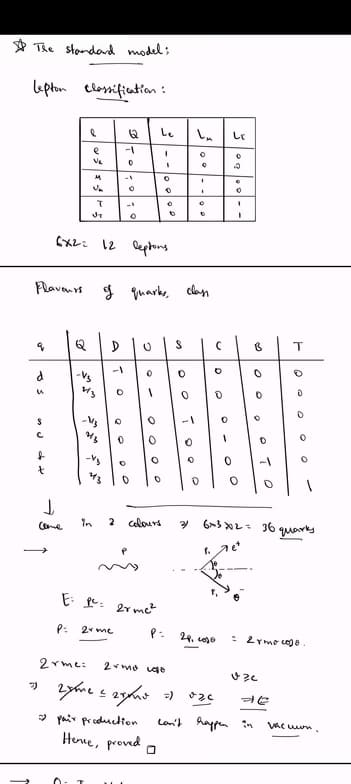 The standard model:
Lepton classification:
l Q Le Lμ Lτ
e -1 1 0 0
νe 0 1 0 0
μ -1 0 1 0
νμ 0 0 1 0
τ -1 0 0 1
ντ 0 0 0 1
6x2 = 12 leptons
Flavours of quarks, class
q Q D U S C B T
d -1/3 -1 0 0 0 0 0
u 2/3 0 1 0 0 0 0
s -1/3 0 0 -1 0 0 0
c 2/3 0 0 0 1 0 0
b -1/3 0 0 0 0 -1 0
t 2/3 0 0 0 0 0 1
↓
come in 3 colours ⇒ 6x3x2 = 36 quarks
→ P P1 e+
θ
θ
P1 e-
E = pc = 2rmc²
P = 2rmc P = 2P1 cosθ = 2rmv cosθ.
2rmc = 2rmv cosθ v≥c
⇒ 2rmc ≤ 2rmv ⇒ v≥c ⇒⇐
⇒ pair production can't happen in vacuum.
Hence, proved □